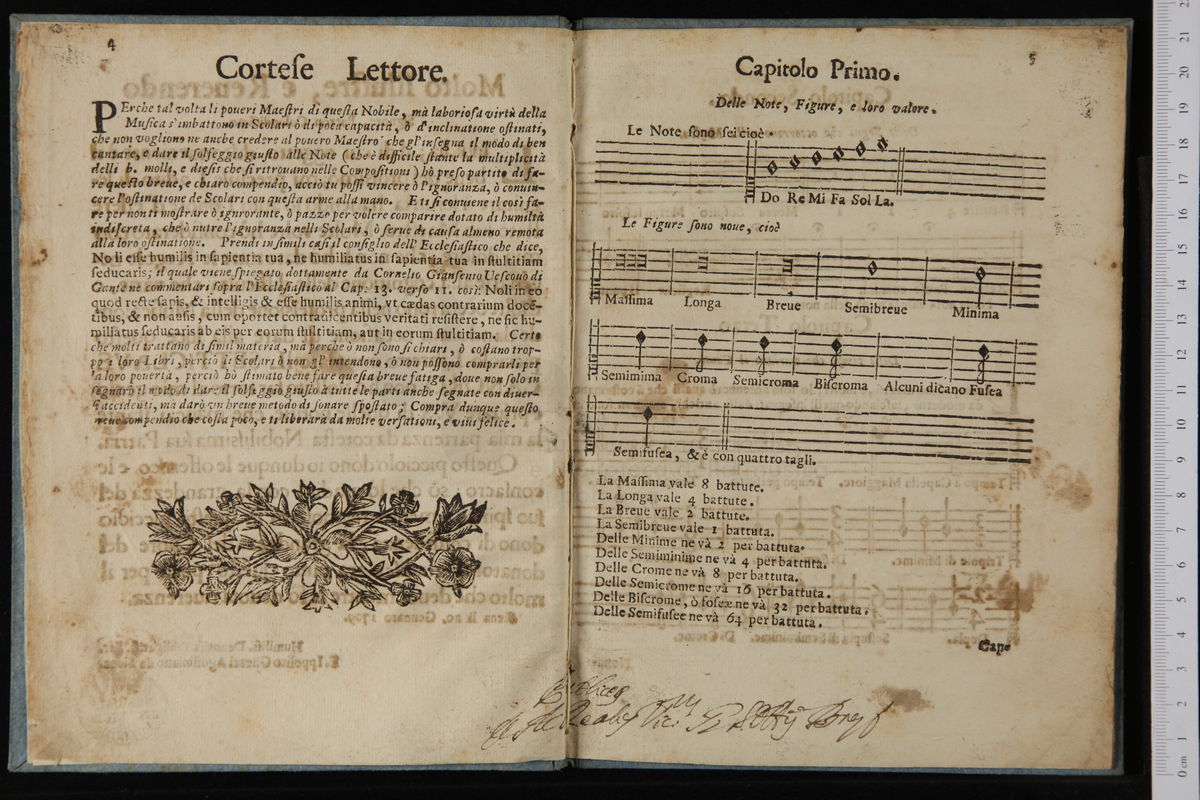 4
Corteſe Lettore.
PErche tal volta li poueri Maeſtri di queſta Nobile, mà laborioſa virtù della
Muſica s'imbattono in Scolari ò di poca capacità, ò d'inclinatione oſtinati,
che non vogliono ne anche credere al pouero Maeſtro che gl'inſegna il modo di ben
cantare, e dare il ſolfeggio giuſto alle Note (che è difficile ſtante la multiplicità
delli b. molli, e dieſis che ſi ritrouano nelle Compoſitioni) hò preſo partito di fa-
re queſto breue, e chiaro compendio, acciò tu poſſi vincere ò l'ignoranza, ò conuin-
cere l'oſtinatione de Scolari con queſta arme alla mano. E ti ſi conuiene il così fa-
re per non ti moſtrare ò ignrorante, ò pazzo per volere comparire dotato di humiltà
indiſcreta, che ò nutre l'ignoranza nelli Scolari, ò ſerue di cauſa almeno remota
alla loro oſtinatione. Prendi in ſimili caſi il conſiglio dell' Eccleſiaſtico che dice,
No li eſſe humilis in ſapientia tua, ne humiliatus in ſapientia tua in ſtultitiam
ſeducaris; il quale viene ſpiegato dottamente da Cornelio Gianſenio Veſcouo di
Gante ne commentari ſopra l'Eccleſiaſtico al Cap: 13. verſo 11. così: Noli in eo
quod recte ſapis, & intelligis & eſſe humilis animi, vt cædas contrarium docẽ-
tibus, & non auſis, cum oportet contradicentibus veritati reſiſtere, ne ſic hu-
miliatus ſeducaris ab eis per eorum ſtultitiam, aut in eorum ſtultitiam. Certo
che molti trattano di ſimil materia, mà perche ò non ſono ſi chiari, ò coſtano trop-
po i loro Libri, perciò li Scolari ò non gl' intendono, ò non poſſono comprarli per
la loro pouertà, perciò hò ſtimato bene fare queſta breue fatiga, doue non ſolo in
ſegnarò il modo di dare il ſolfeggio giuſto à tutte le parti anche ſegnate con diuer-
ſi accidenti, ma darò vn breue metodo di ſonare ſpoſtato; Compra dunque queſto
breue compendio che coſta poco, e ti liberarà da molte verſationi, e viui felice.
5
Capitolo Primo.
Delle Note, Figure, e loro valore.
Le Note ſono ſei cioè.
Do Re Mi Fa Sol La.
Le Figure ſono noue, cioè
Maſſima Longa Breue Semibreue Minima
Semimima Croma Semicroma Biſcroma Alcuni dicano Fuſea
Semifuſea, & è con quattro tagli.
La Maſſima vale 8 battute.
La Longa vale 4 battute.
La Breue vale 2 battute.
La Semibreue vale 1 battuta.
Delle Minime ne và 2 per battuta.
Delle Semiminime ne và 4 per battuta.
Delle Crome ne và 8 per battuta.
Delle Semicrome ne và 16 per battuta.
Delle Biſcrome, ò foſeæ ne và 32 per battuta.
Delle Semifuſee ne và 64 per battuta.
Cape